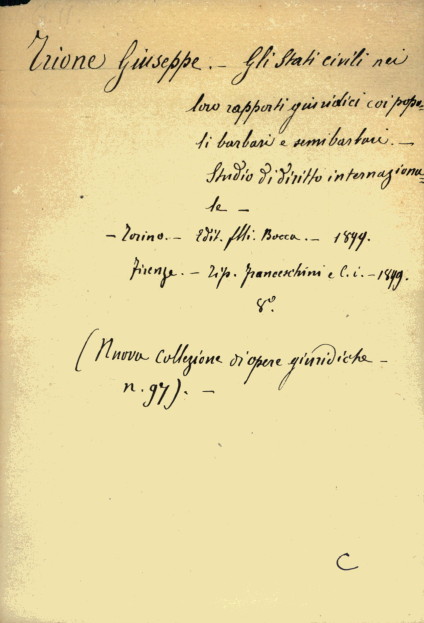 Trione Giuseppe. - Gli Stati civili nei
loro rapporti giuridici coi popo-
li barbari e semibarbari. -
Studio di diritto internaziona-
le -
- Torino. - Edit. flli. Bocca. - 1899.
Firenze. - Tip. Franceschini e C. i. - 1899.
8º.
(Nuova Collezione di opere giuridiche -
n. 97). -
C